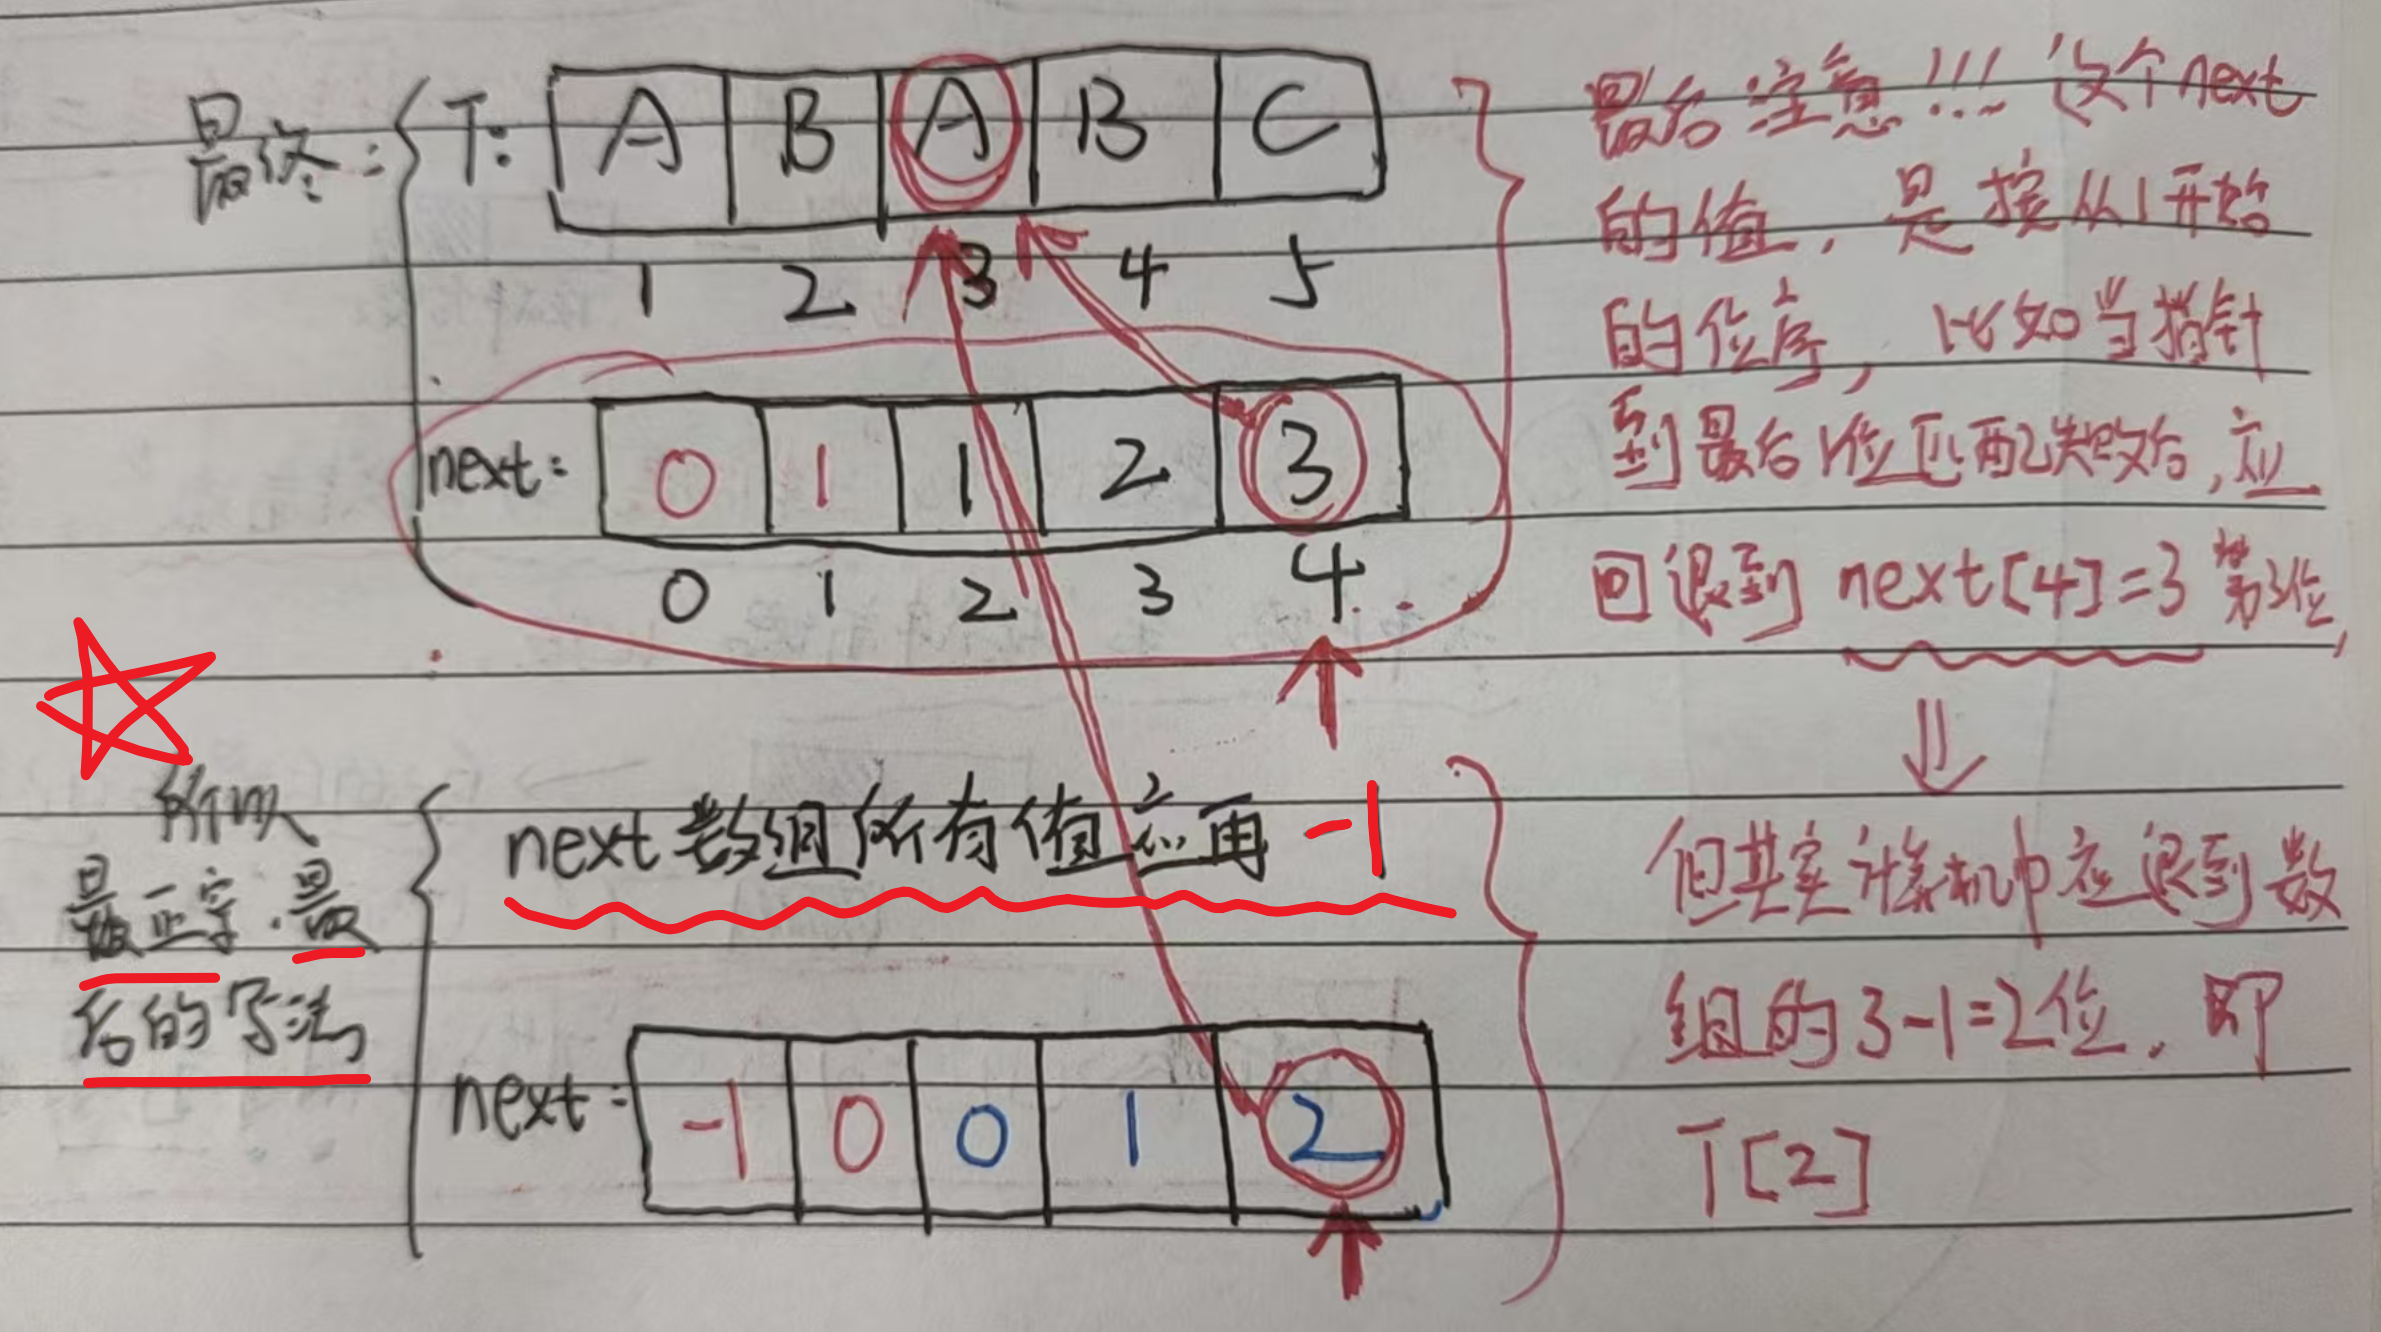 最终：
T: A B A B C
1 2 3 4 5
next: 0 1 1 2 3
0 1 2 3 4
最后注意!!! 这个next
的值，是按从1开始
的位序，比如当指针
到最后1位匹配失败后，应
回退到 next[4]=3 第3位，
⇓
但其实计算机中应退到数
组的3-1=2位，即
T[2]
所以
最正宗.最
后的写法
next数组所有值应再 -1
next: -1 0 0 1 2